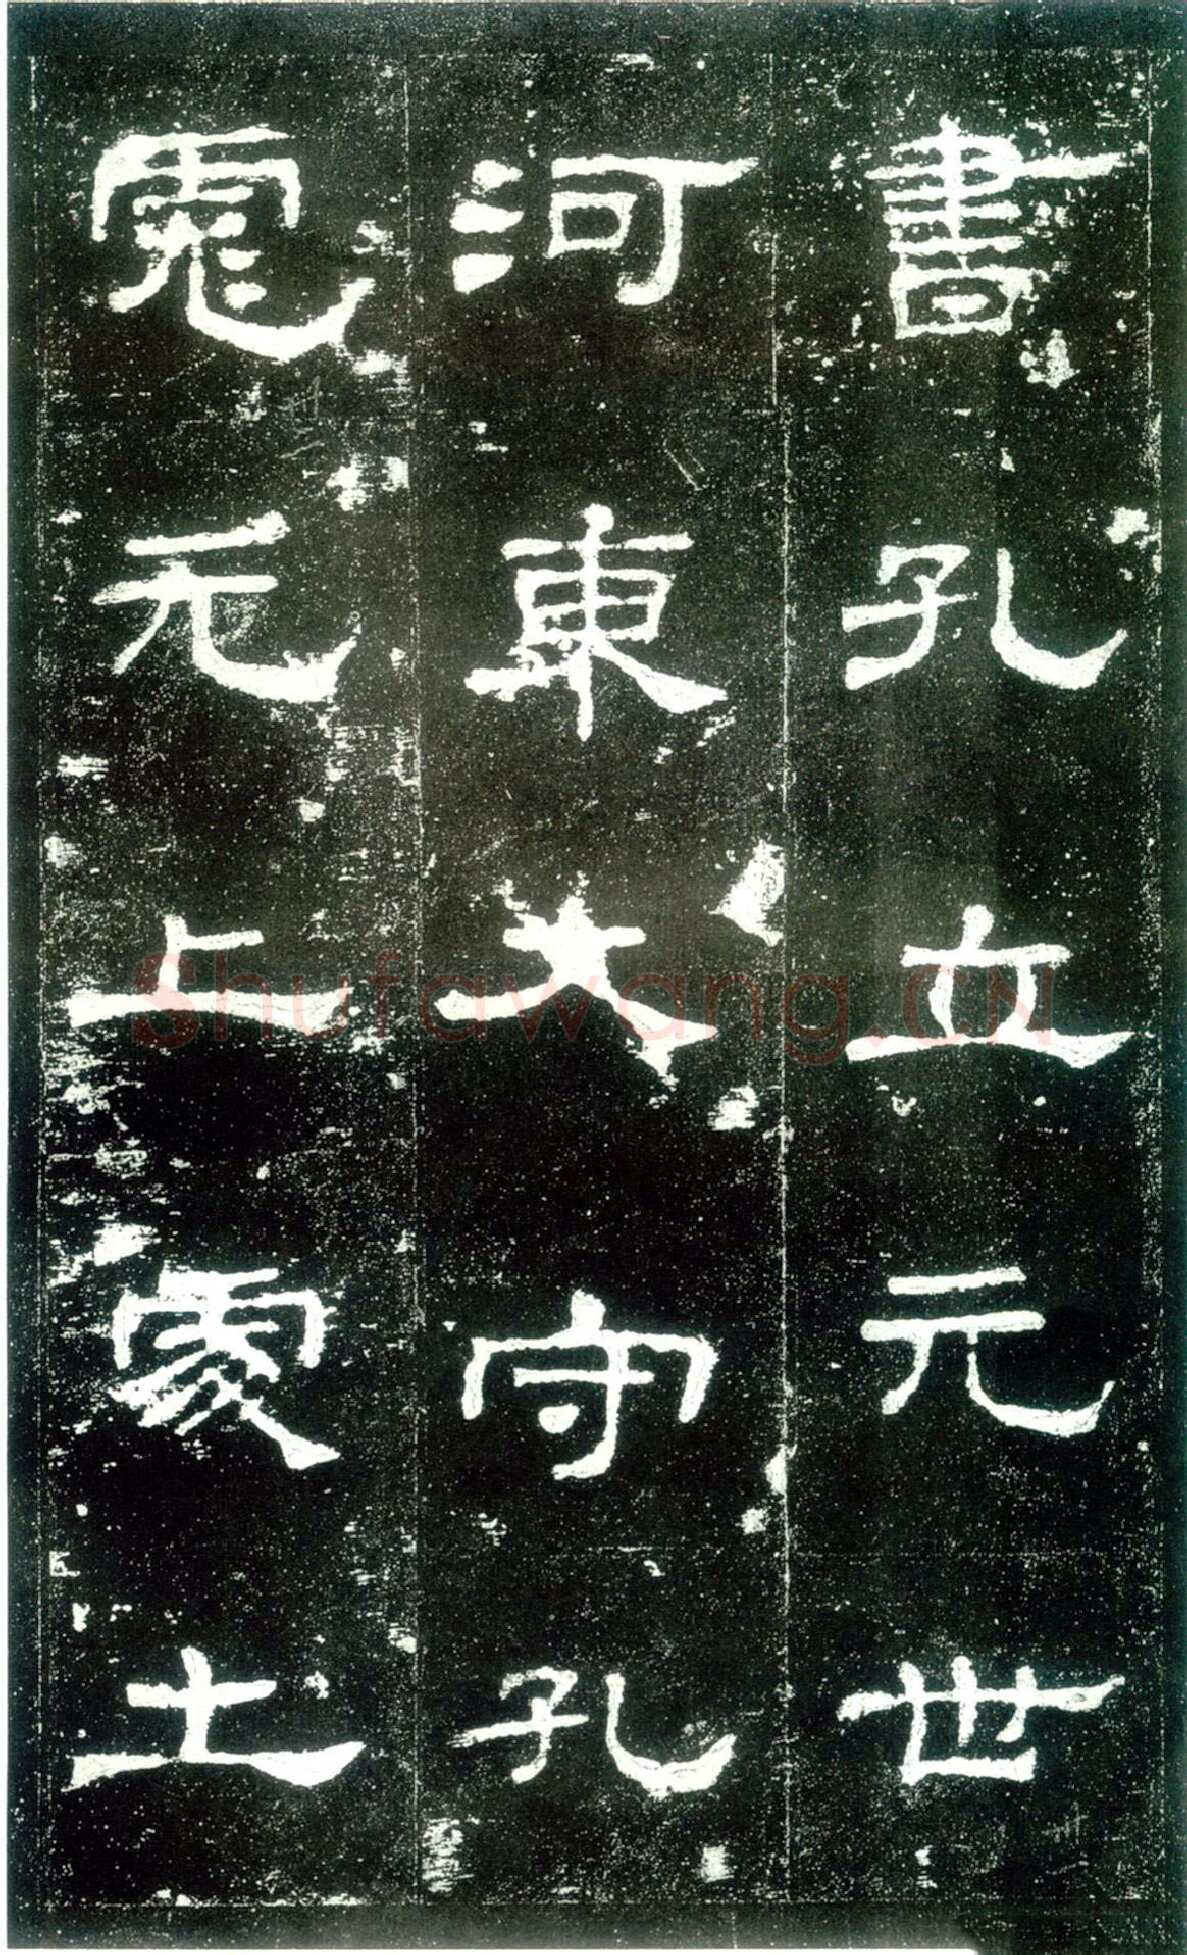 書孔立元世
河東大守孔
彪元上處士
Shufawang.CN